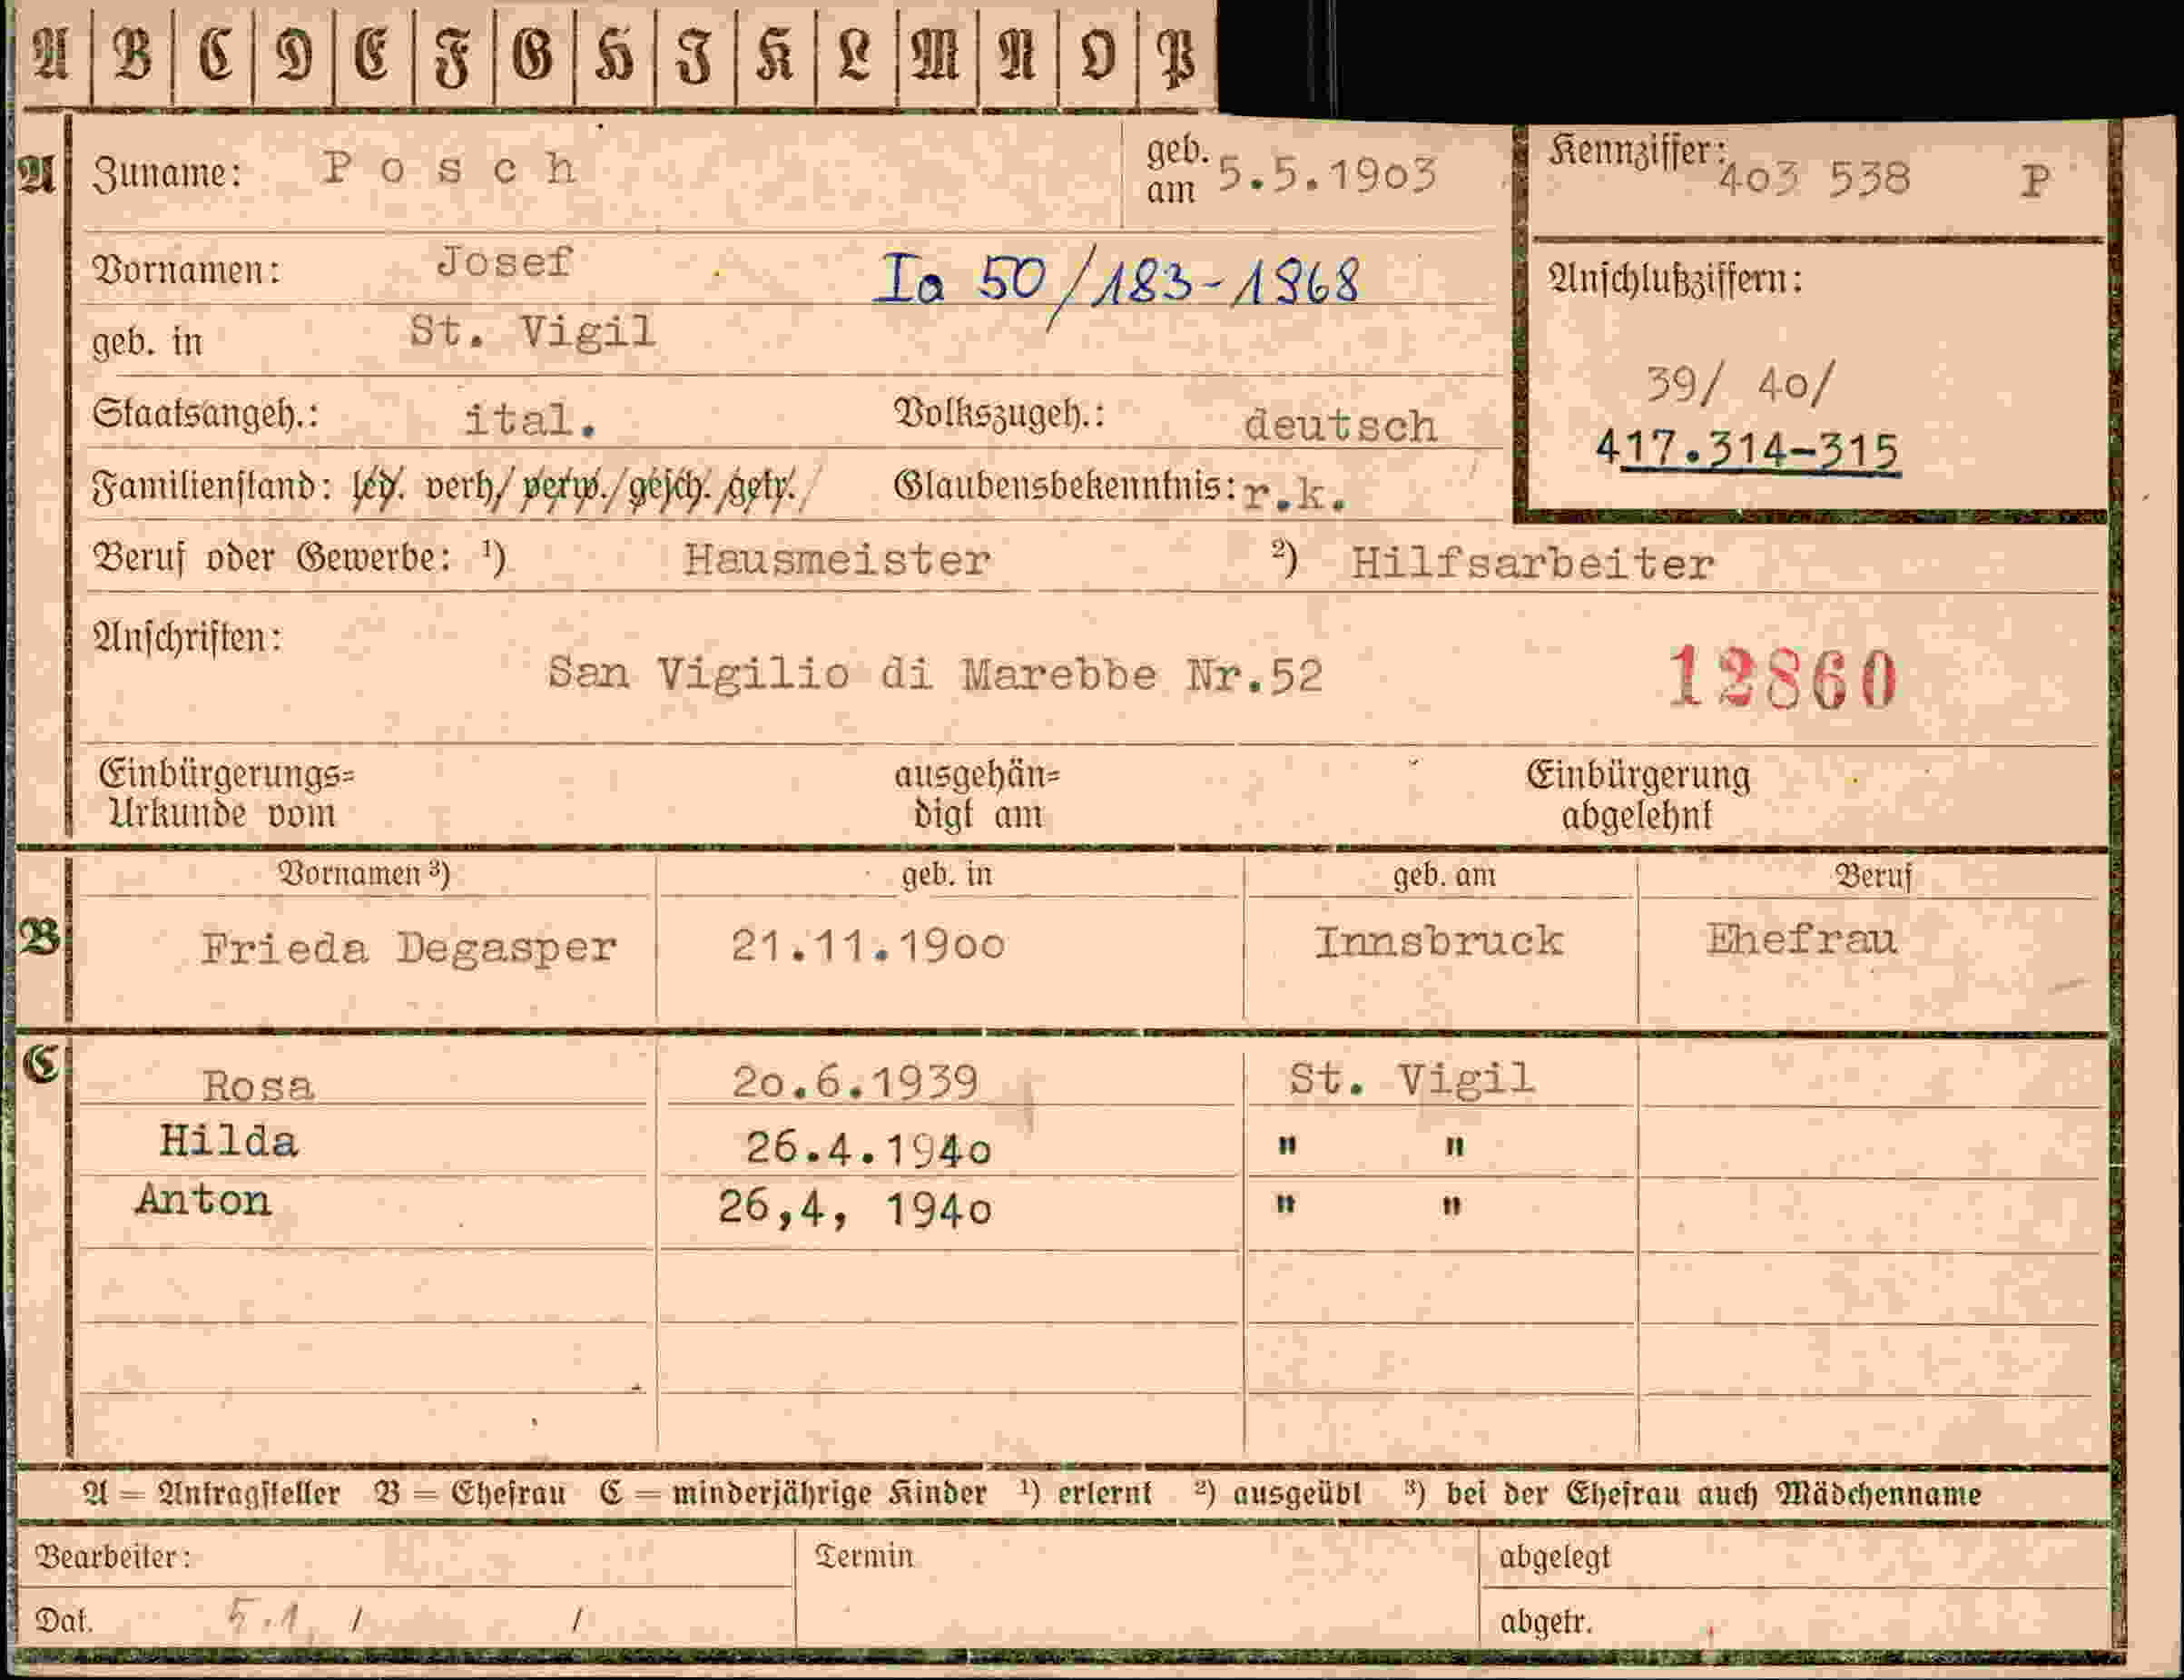 A B C D E F G H I K L M N O P
A Zuname: Posch geb. am 5.5.1903 Kennziffer: 403 538 P
Vornamen: Josef Ia 50/183-1968 Anschlußziffern:
geb. in St. Vigil
39/ 40/
Staatsangeh.: ital. Volkszugeh.: deutsch
417.314-315
Familienstand: led. verh/ verw./gesch./getr./ Glaubensbekenntnis: r.k.
Beruf oder Gewerbe: ¹) Hausmeister ²) Hilfsarbeiter
Anschriften:
San Vigilio di Marebbe Nr.52 12860
Einbürgerungs= ausgehän= Einbürgerung
Urkunde vom digt am abgelehnt
Vornamen ³) geb. in geb. am Beruf
B Frieda Degasper 21.11.1900 Innsbruck Ehefrau
C Rosa 20.6.1939 St. Vigil
Hilda 26.4.1940 " "
Anton 26,4, 1940 " "
A = Antragsteller B = Ehefrau C = minderjährige Kinder ¹) erlernt ²) ausgeübt ³) bei der Ehefrau auch Mädchenname
Bearbeiter: Termin abgelegt
Dat. 5.1. / / abgetr.